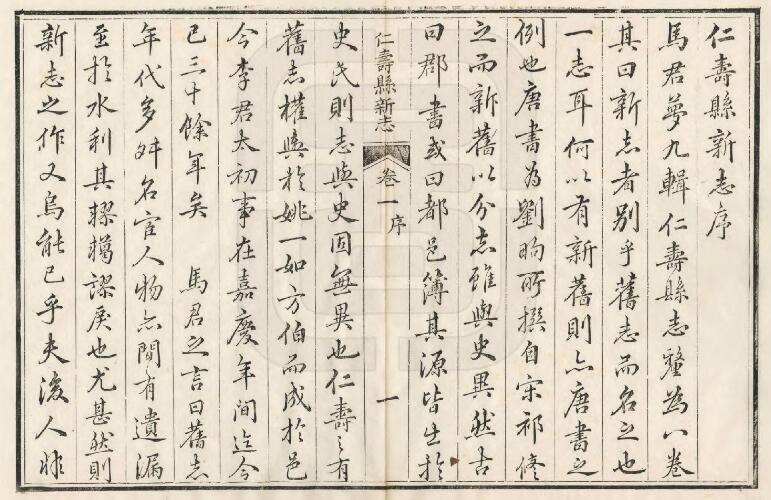 仁壽縣新志序
馬君夢九輯仁壽縣志釐為八卷
其曰新志者別乎舊志而名之也
一志耳何以有新舊則亦唐書之
例也唐書為劉昫所撰自宋祁修
之而新舊以分志雖與史異然古
曰郡書或曰都邑簿其源皆出於
仁壽縣新志 卷一序 一
史氏則志與史固無異也仁壽之有
舊志權輿於姚一如方伯而成於邑
令李君太初事在嘉慶年間迄今
已三十餘年矣 馬君之言曰舊志
年代多舛名宦人物亦間有遺漏
至於水利其轇轕謬戾也尤甚然則
新志之作又烏能已乎夫後人非